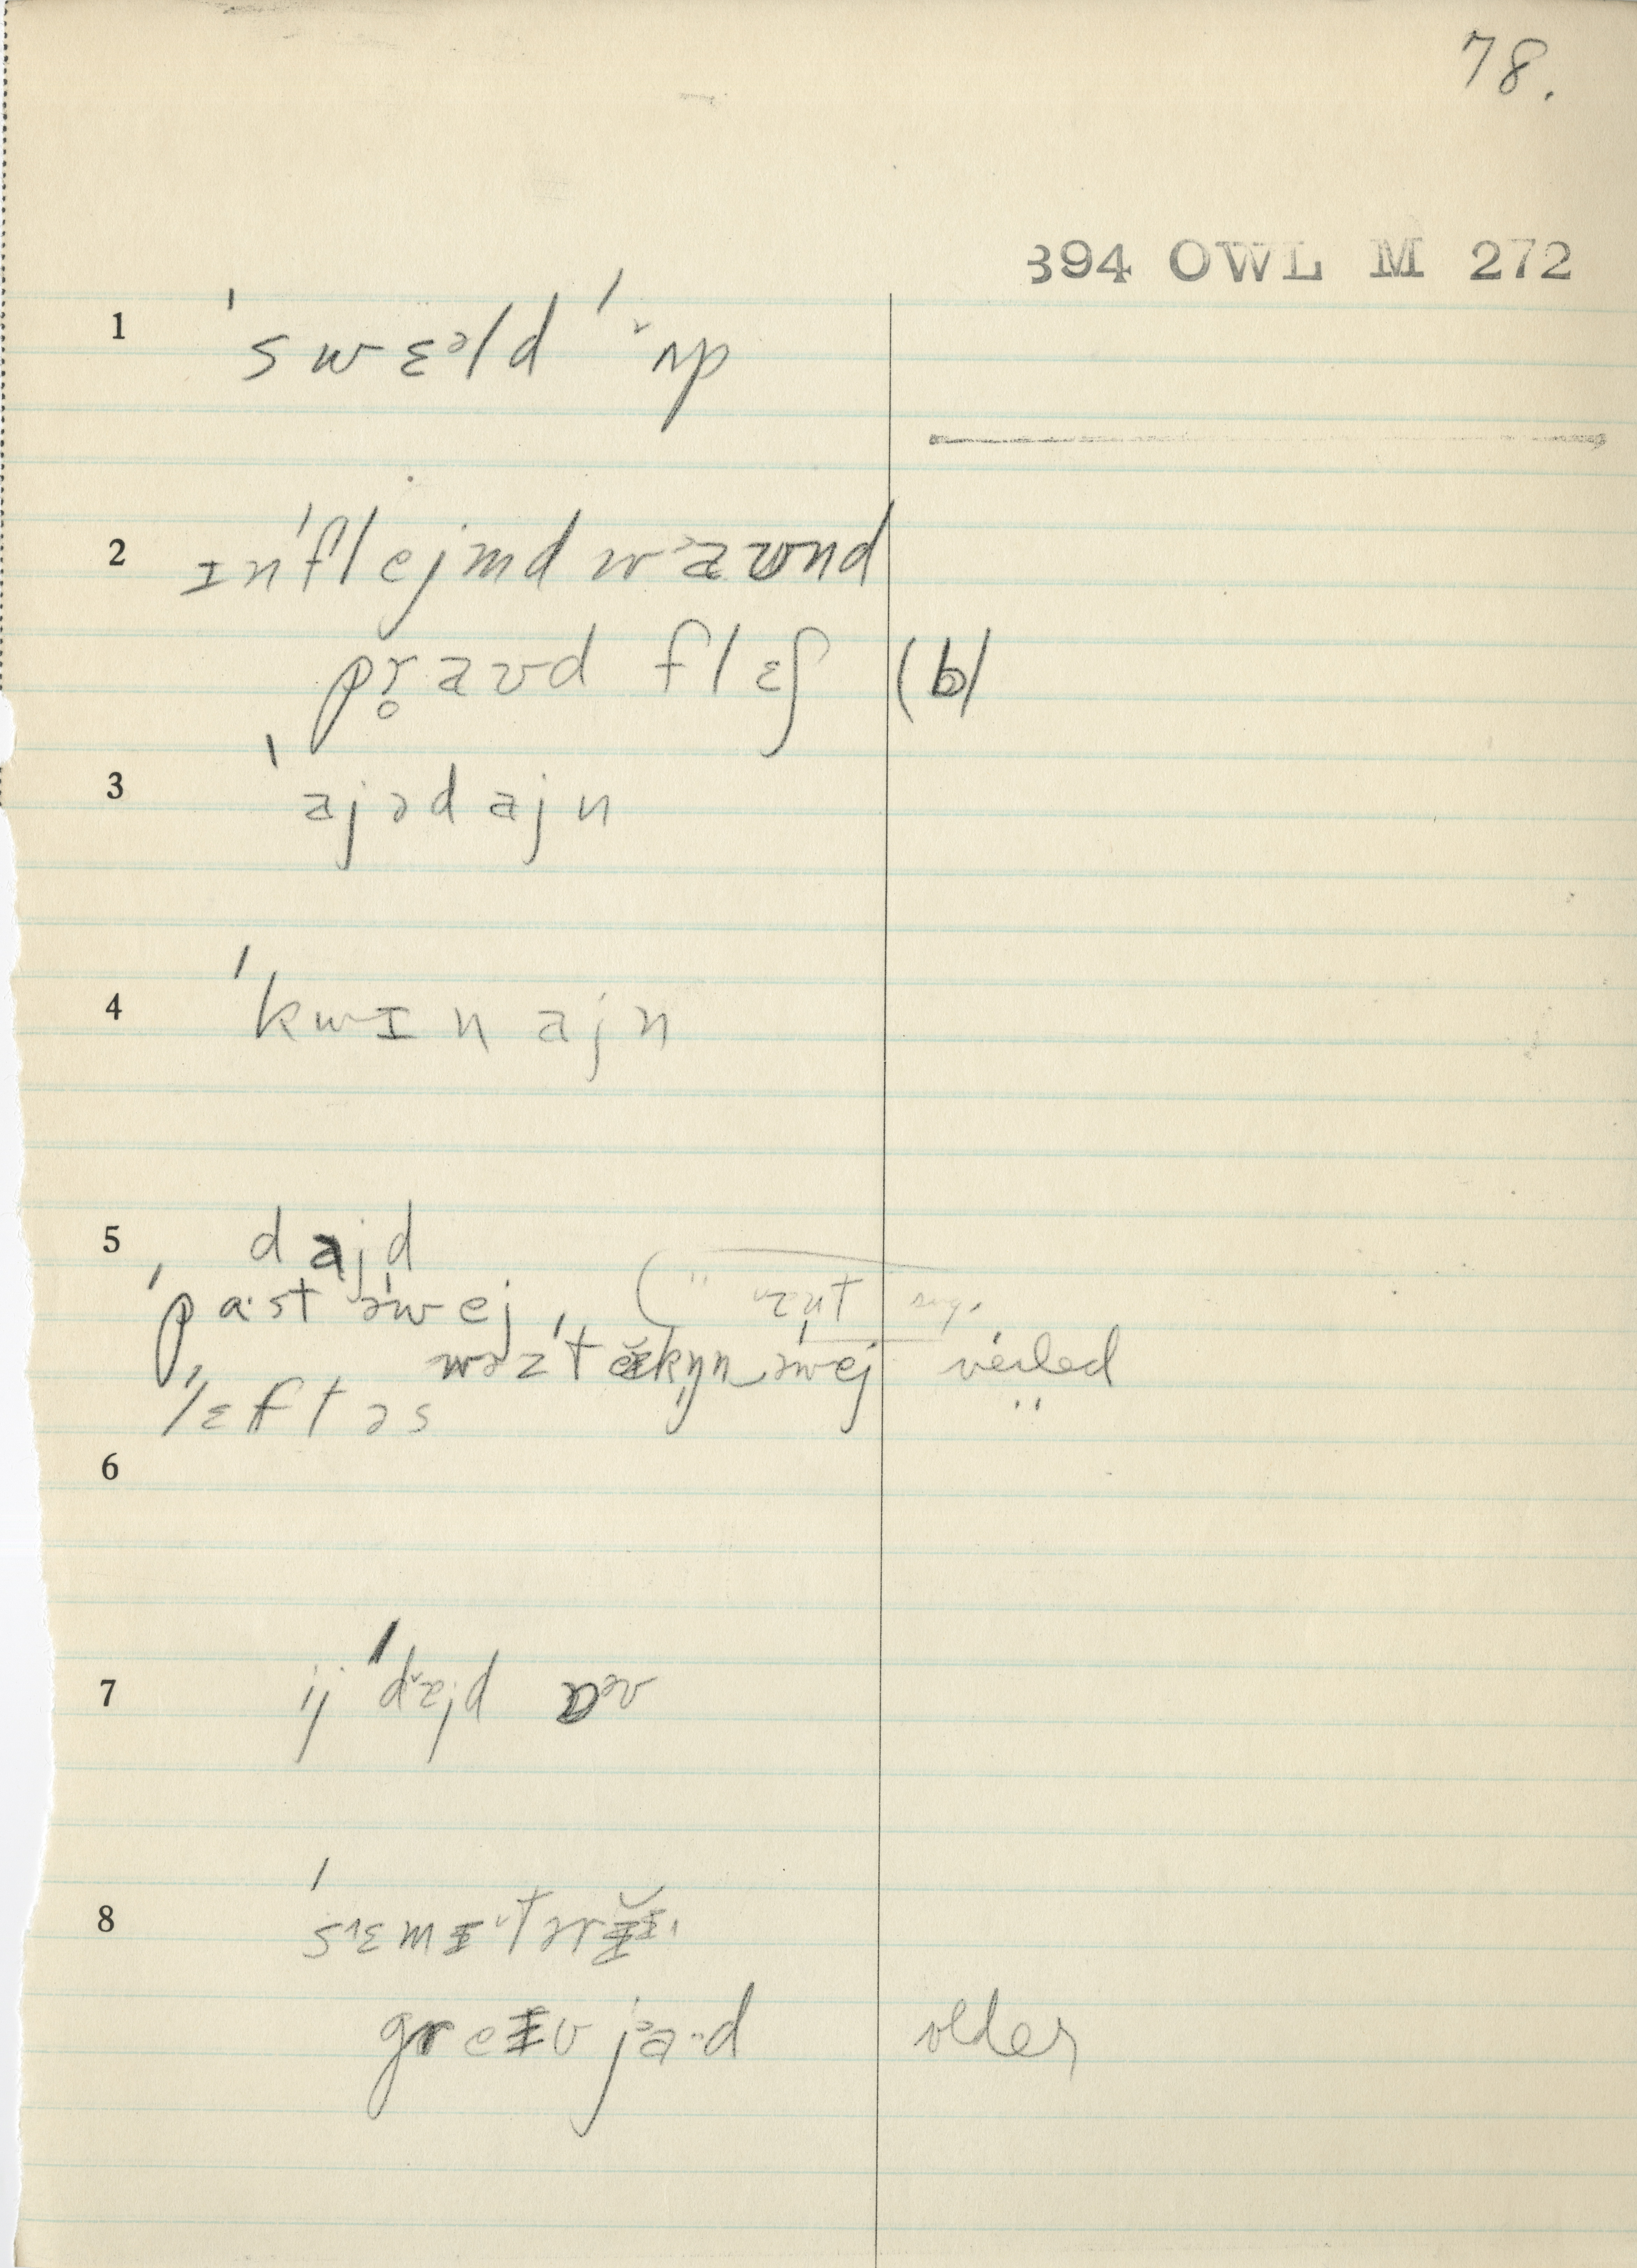 78.
394 OWL M 272
1 ˈswɛᵊld ˈʌp
2 ɪnˈflejmd wᵊaʊnd
pr̥aʊd flɛʃ (b)
3 ˈajədajn
4 ˈkwɪnajn
5 dajd
ˈpa·st əˈwej
wəz ˈtekn̩ əˈwej veiled
ˈlɛft əs
6
7 ij ˈdajd
8 ˈsɛmɪtɚɪ
greɪv ja·d older